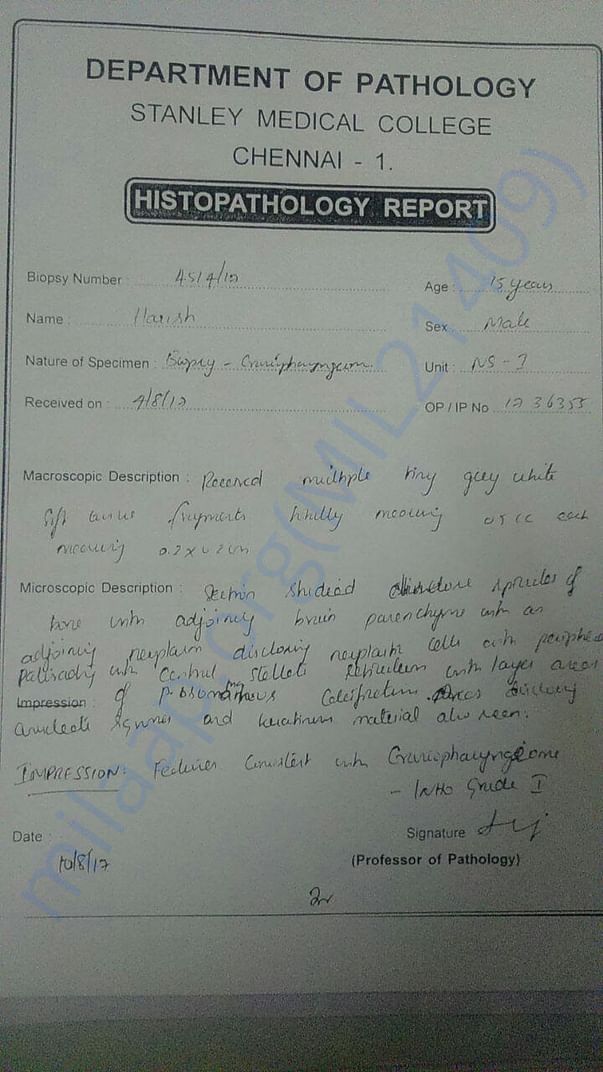 DEPARTMENT OF PATHOLOGY
STANLEY MEDICAL COLLEGE
CHENNAI - 1.
HISTOPATHOLOGY REPORT
Biopsy Number : 4514/17 Age : 15 years
Name : Harish Sex : Male
Nature of Specimen : Biopsy - Craniopharyngioma. Unit : NS - I
Received on : 4/8/17 OP / IP No 1736355
Macroscopic Description : Received multiple tiny grey white
soft tissue fragments totally measuring 0.5 cc each
measuring 0.2 x 0.2 cm
Microscopic Description : Section studied disclose spicules of
bone with adjoining brain parenchyma with an
adjoining neoplasm disclosing neoplastic cells with peripheral
palisading with central stellate reticulum with areas
Impression : of psammomatous calcification. Areas disclosing
anucleate squames and keratinous material also seen.
IMPRESSION: Features consistent with Craniopharyngioma
- WHO Grade I
Date : Signature
10/8/17 (Professor of Pathology)
milaap.org(MIL21409)